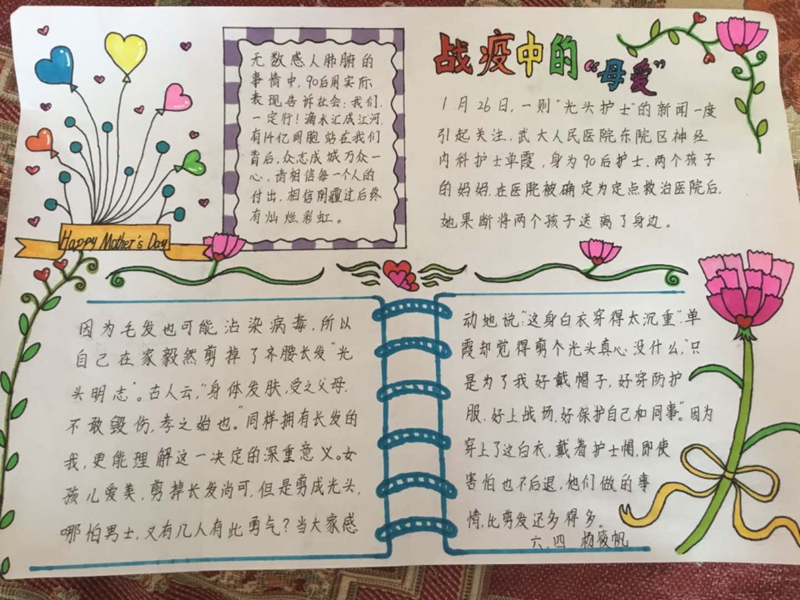 战疫中的"母爱"
无数感人肺腑的
事情中,90后用实际
表现告诉社会:我们,
一定行!滴水汇成江河,
有14亿同胞站在我们
背后,众志成城万众一
心,请相信每一个人的
付出,相信阴霾过后终
有灿烂彩虹。
1月26日,一则"光头护士"的新闻一度
引起关注,武大人民医院东院区神经
内科护士单霞,身为90后护士,两个孩子
的妈妈,在医院被确定为定点救治医院后,
她果断将两个孩子送离了身边。
Happy Mother's Day
因为毛发也可能沾染病毒,所以
自己在家毅然剪掉了齐腰长发"光
头明志"。古人云,"身体发肤,受之父母,
不敢毁伤,孝之始也。"同样拥有长发的
我,更能理解这一决定的深重意义。女
孩儿爱美,剪掉长发尚可,但是剪成光头,
哪怕男士,又有几人有此勇气?当大家感
动地说:"这身白衣穿得太沉重",单
霞却觉得剪个光头真心没什么,"只
是为了我好戴帽子,好穿防护
服,好上战场,好保护自己和同事。"因为
穿上了这白衣,戴着护士帽,即使
害怕也不后退,他们做的事
情,比剪发还多得多。
六.四